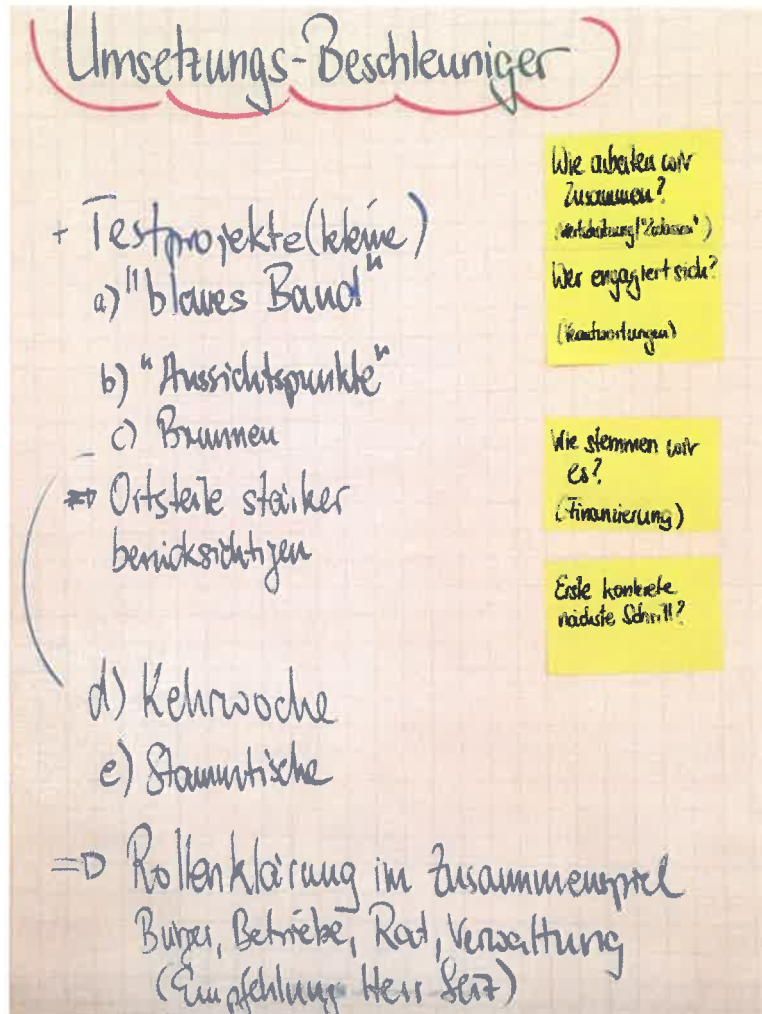 Umsetzungs-Beschleuniger
+ Testprojekte (kleine)
a) "blaues Band"
b) "Aussichtspunkte"
c) Brunnen
=> Ortsteile stärker
berücksichtigen
d) Kehrwoche
e) Stammtische
=> Rollenklärung im Zusammenspiel
Bürger, Betriebe, Rat, Verwaltung
(Empfehlung Herr
Wie arbeiten wir
zusammen?
(Wertschätzung
Wer engagiert sich?
Wie stemmen wir
es?
(Finanzierung)
Erste konkrete
nächste Schritt?